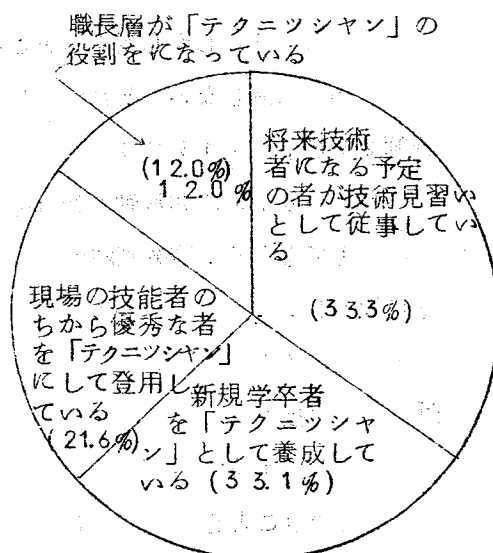 職長層が「テクニツシヤン」の
役割をになっている
(12.0%)
12.0%
将来技術
者になる予定
の者が技術見習い
として従事してい
る
(33.3%)
現場の技能者の
ちから優秀な者
を「テクニツシヤン」
にして登用し
ている
(21.6%)
新規学卒者
を「テクニツシヤ
ン」として養成して
いる(33.1%)